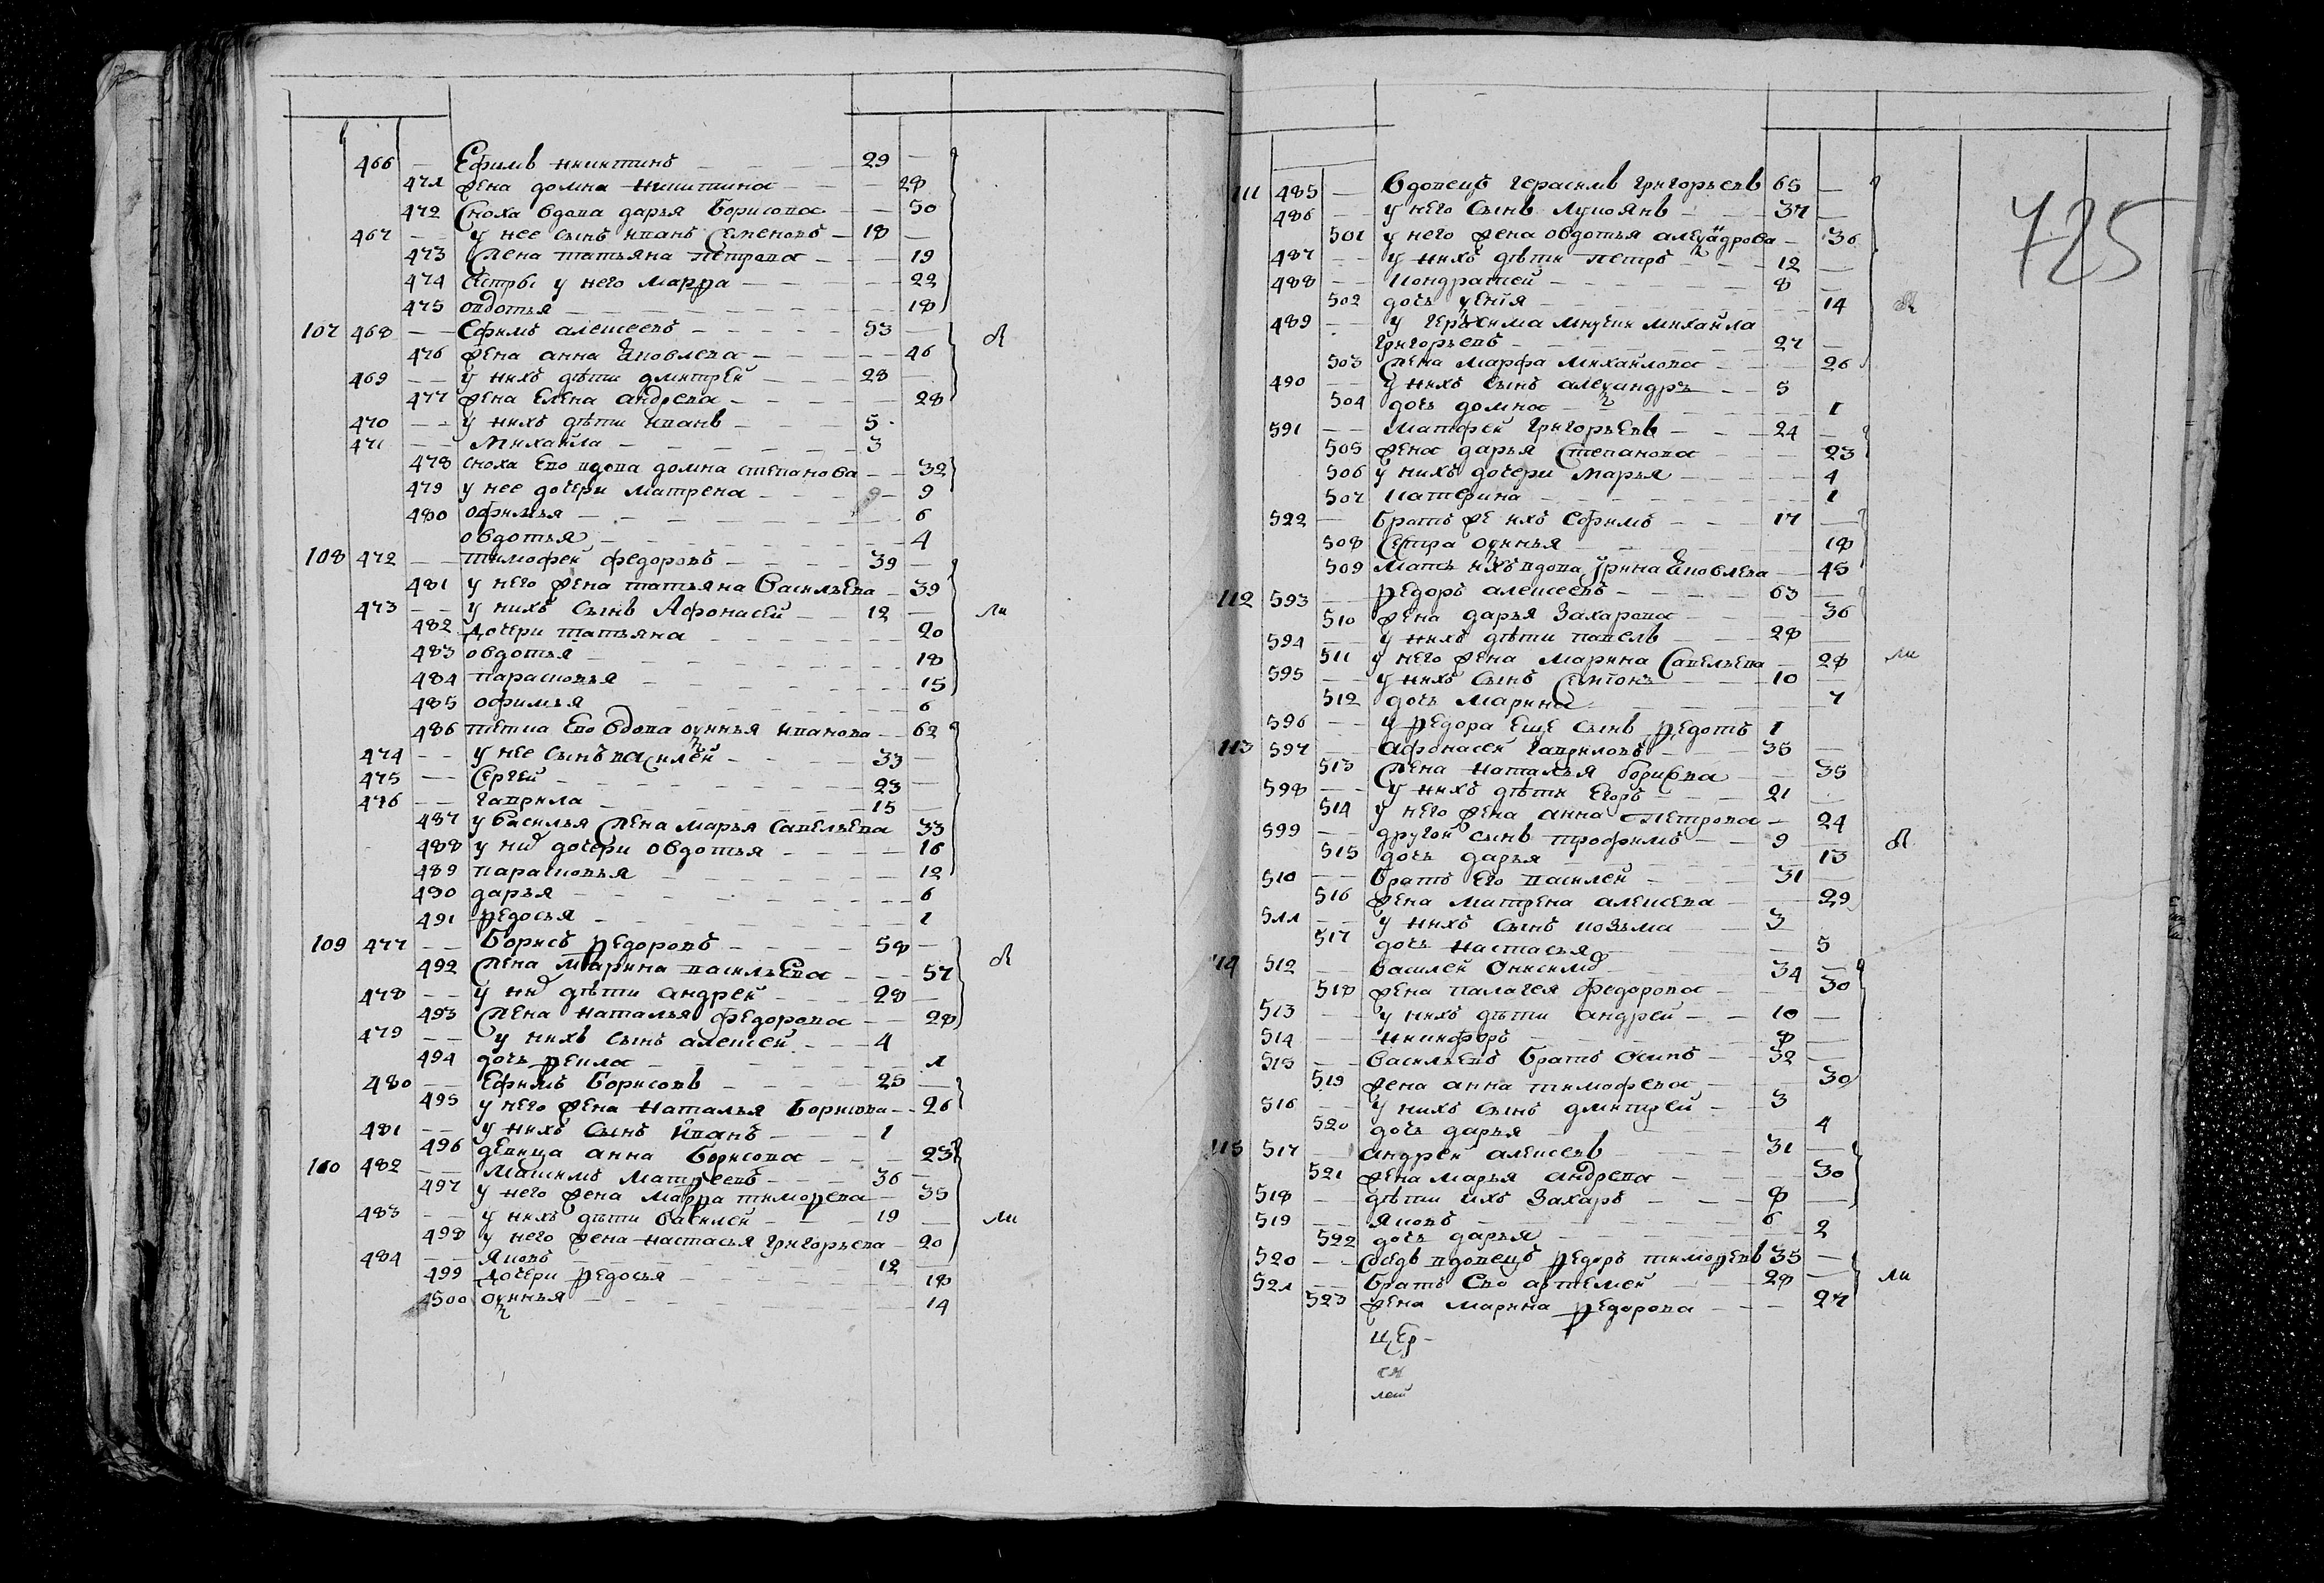 466 — Ефимъ никитинъ — 29 —
471 жена домна никитина — 28
472 Сноха вдова дарья Борисова — 50
467 — у нее сынъ иванъ Семеновъ — 18 —
473 Жена татьяна петрова — 19
474 сестры у него Марфа — 22
475 овдотья — 18
107 468 — Ефимъ алексеевъ — 53 —
476 жена анна Яковлева — 46
469 — у нихъ дѣти дмитрей — 28 —
477 жена Елена андрева — 28
470 — у нихъ дѣти иванъ — 5
471 — Михайла — 3
478 сноха Ево вдова домна степанова — 32
479 у нее дочери матрена — 9
480 офимья — 6
овдотья — 4
108 472 — тимофей федоровъ — 39 —
481 у него жена татьяна Васильева — 39
473 — у нихъ сынъ Афонасей — 12 —
482 дочери татьяна — 20
483 овдотья — 18
484 парасковья — 15
485 офимья — 6
486 тетка Ево вдова оксинья иванова — 62
474 — у нее сынъ василей — 33 —
475 — Сергей — 23 —
476 — гаврила — 15 —
487 у Василья Жена марья савельева 33
488 у них дочери овдотья — 16
489 парасковья — 12
490 дарья — 6
491 федосья — 1
109 477 — Борисъ федоровъ — 58 —
492 Жена Марина васильева — 57
478 — у них дѣти андрей — 28 —
493 Жена наталья федорова — 28
479 — у нихъ сынъ алексей — 4
494 дочь фекла — 1
480 — Ефимъ Борисовъ — 25 —
495 у него жена наталья Борисова — 26
481 — у нихъ сынъ Иванъ — 1
496 девица анна Борисова — 23
110 482 — Максимъ матфеевъ — 36 —
497 у него жена марфа тимофева — 35
483 — у нихъ дѣти василей — 19 —
498 у него жена настасья григорьева — 20
484 — Яковъ — 12 —
499 дочери федосья — 18
500 оксинья — 14
725
111 485 — Вдовецъ герасимъ григорьевъ 65 —
486 — у него сынъ лукоянъ — 37 —
501 у него жена овдотья алексадрова — 36
487 — у нихъ дѣти петръ — 12 —
488 — кондратей — 8 —
502 дочь ксенія — 14
489 — у герасима внучик михайла
григорьевъ — 27 —
503 Жена марфа михайлова — 26
490 — у нихъ сынъ александръ — 5
504 дочь домна — 1
591 — матфей григорьевъ — 24 —
505 жена дарья степанова — 23
506 у нихъ дочери марья — 4
507 катерина — 1
522 — братъ же ихъ Ефимъ — 17 —
508 Сестра оксинья — 18
509 мать ихъ вдова Ирина Яковлева — 45
112 593 — федоръ алексеевъ — 63 —
510 жена дарья Захарова — 36
594 — у нихъ дѣти павелъ — 28 —
511 у него жена марина савельева — 28
595 — у нихъ сынъ семионъ — 10 —
512 дочь марина — 7
596 — у федора еще сынъ федотъ 1
113 597 — афонасей гавриловъ — 35 —
513 Жена наталья борисева — 35
598 — у нихъ дѣти егоръ — 21
514 у него жена анна петрова — 24
599 — другой сынъ трофимъ — 9 —
515 дочь дарья — 13
510 — братъ Его василей — 31 —
516 жена матрена алексева — 29
511 — у нихъ сынъ козьма — 3 —
517 дочь настасья — 5
114 512 — василей Онисимо — 34 —
518 жена палагея федорова — 30
513 — у нихъ дѣти андрей — 10 —
514 — никифоръ — 8 —
515 — Васильевъ братъ Осипъ — 32 —
519 жена анна тимофева — 30
516 — у нихъ сынъ дмитрей — 3
520 дочь дарья — 4
115 517 — андрей алексеевъ — 31 —
521 жена марья андрева — 30
518 — дѣти ихъ Захаръ — 8 —
519 — Яковъ — 6
522 дочь дарья — 2
520 — соседъ вдовецъ федоръ тимофевъ 35 —
521 — братъ Ево артемей — 28 —
523 жена марина федорова — 27
цер-